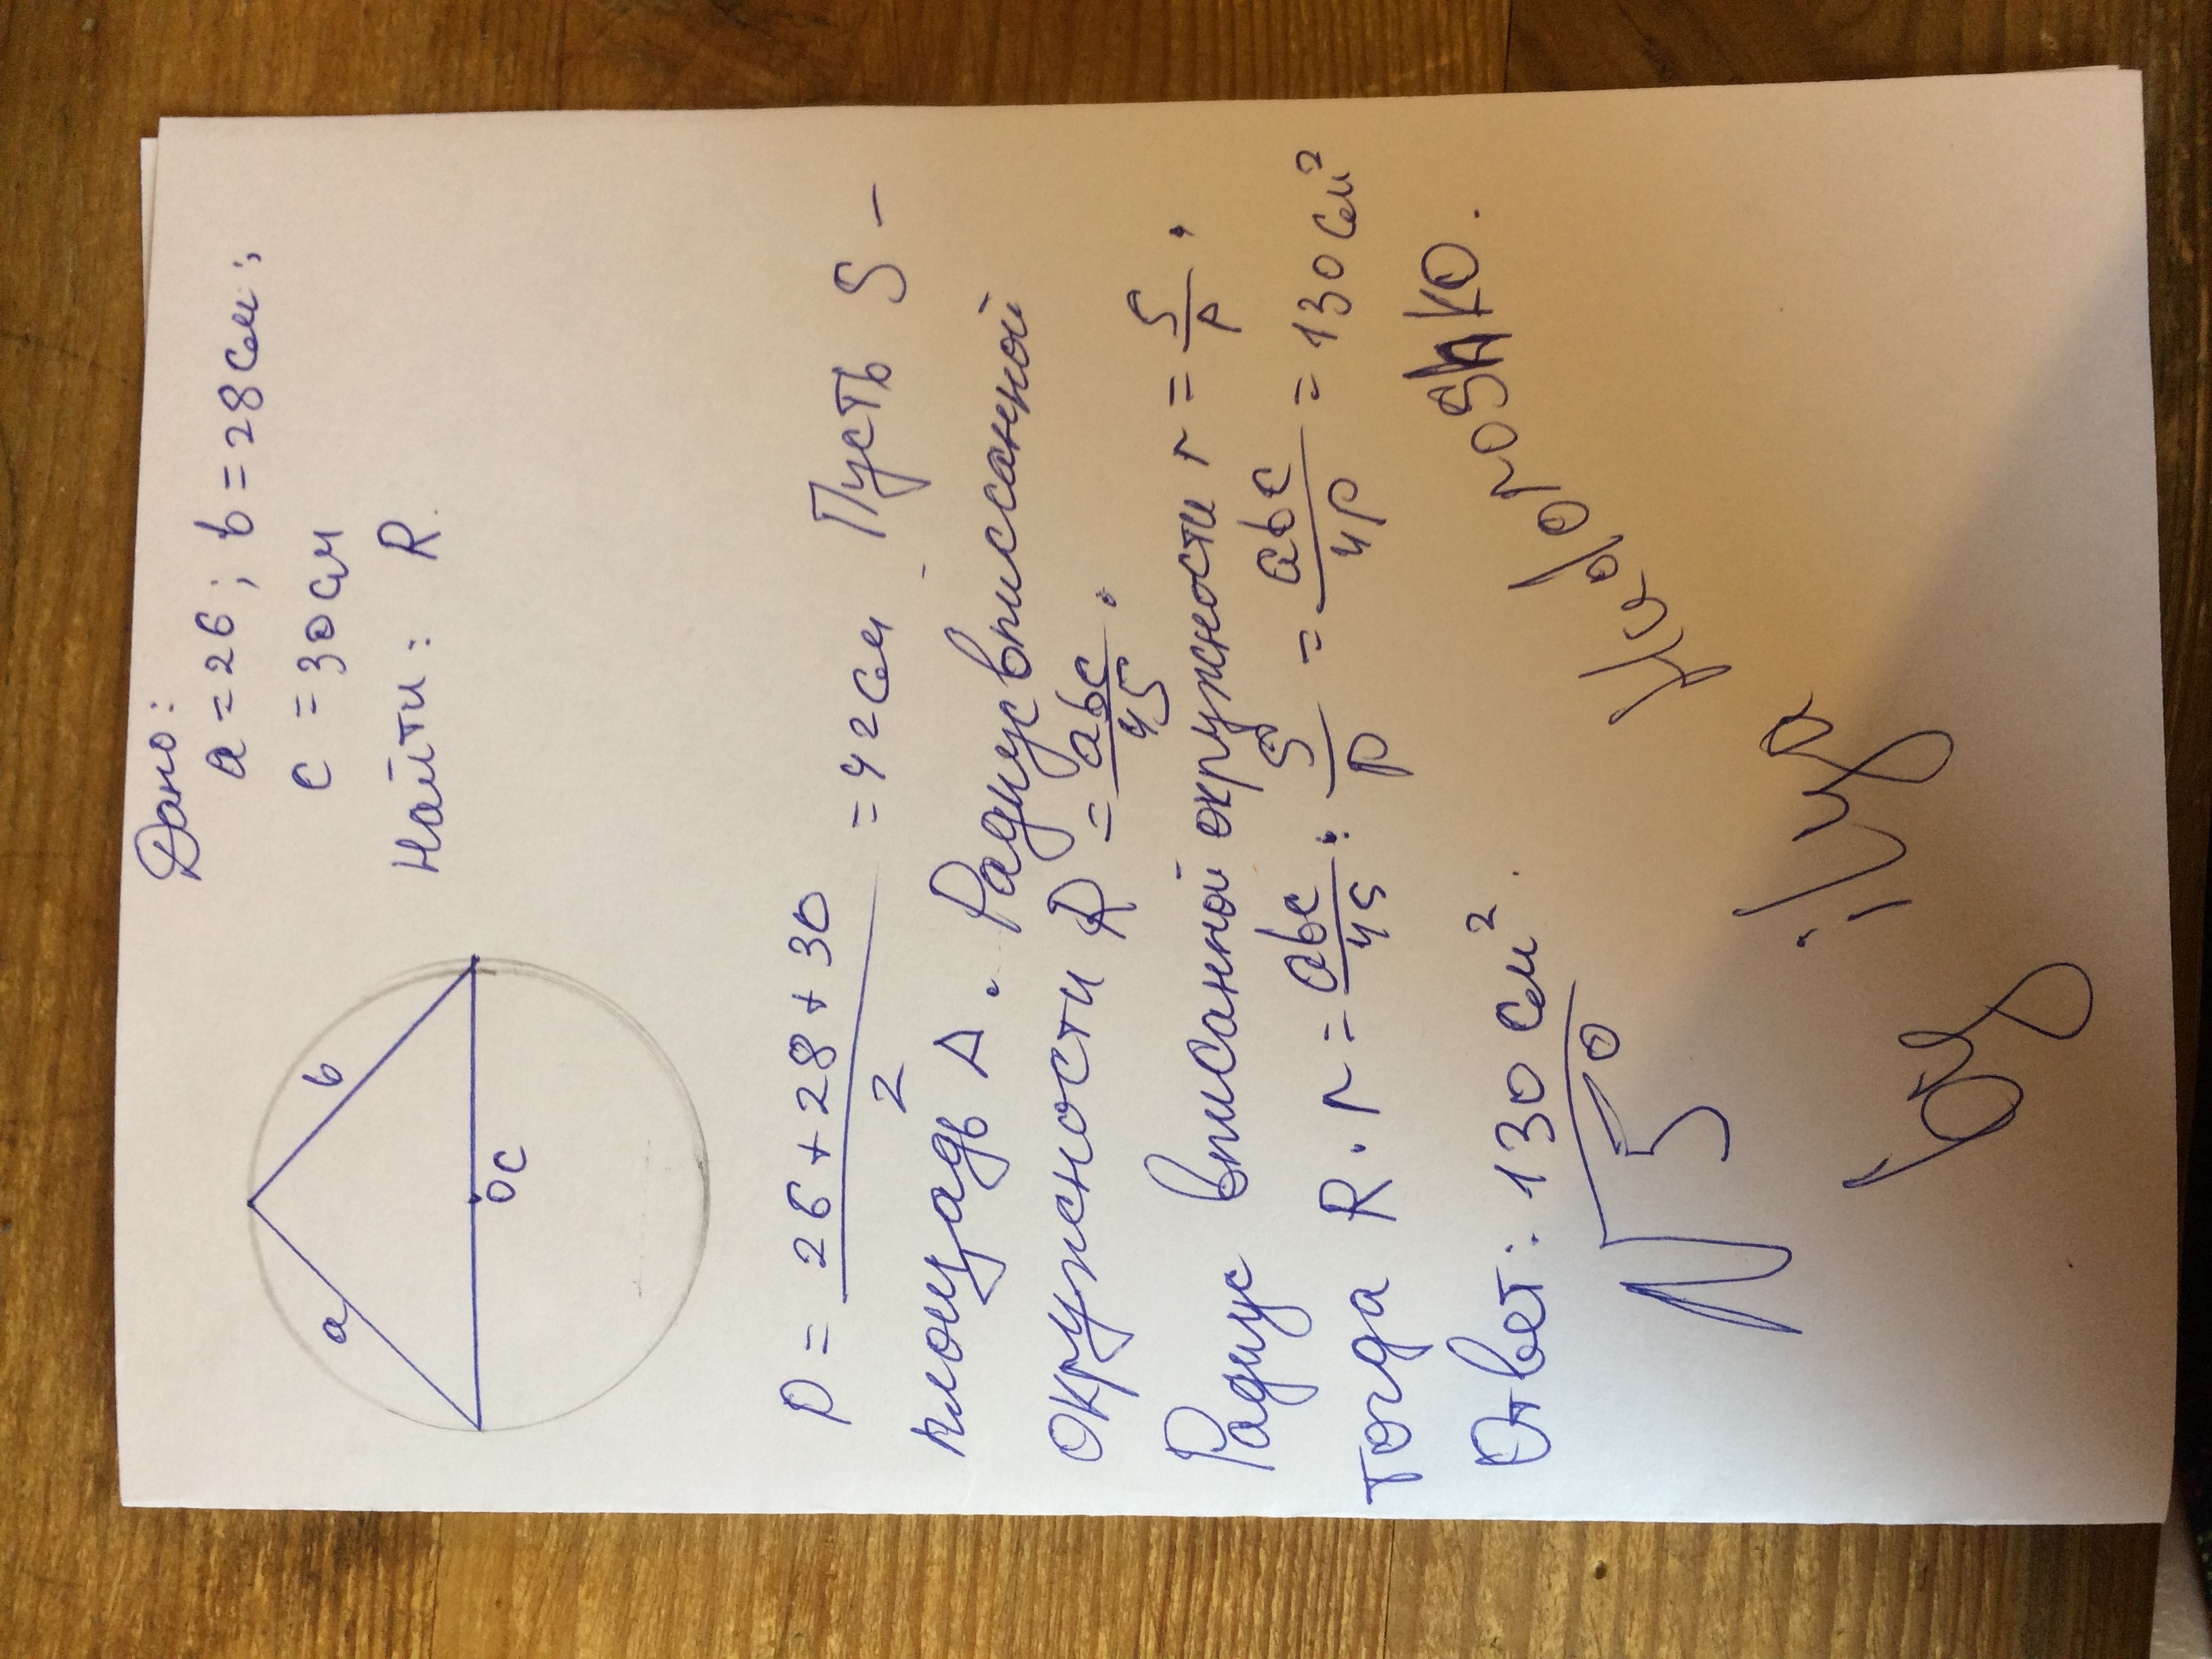 Дано:
a = 26; b = 28 см;
c = 30 см
Найти: R.
a
b
O C
p = 26 + 28 + 30 / 2 = 42 см. Пусть S -
площадь Δ. Радиус вписанной
окружности R = abc / 4S.
Радиус вписанной окружности r = S / p.
тогда R · r = abc / 4S · S / p = abc / 4p = 130 см²
Ответ: 130 см².